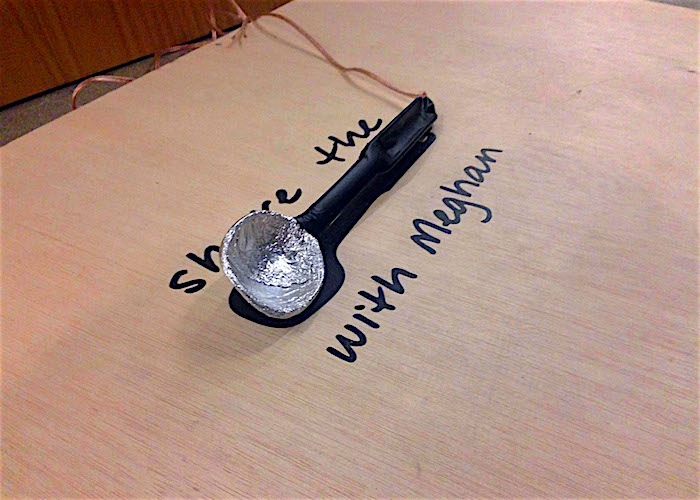 Share the
with Meghan